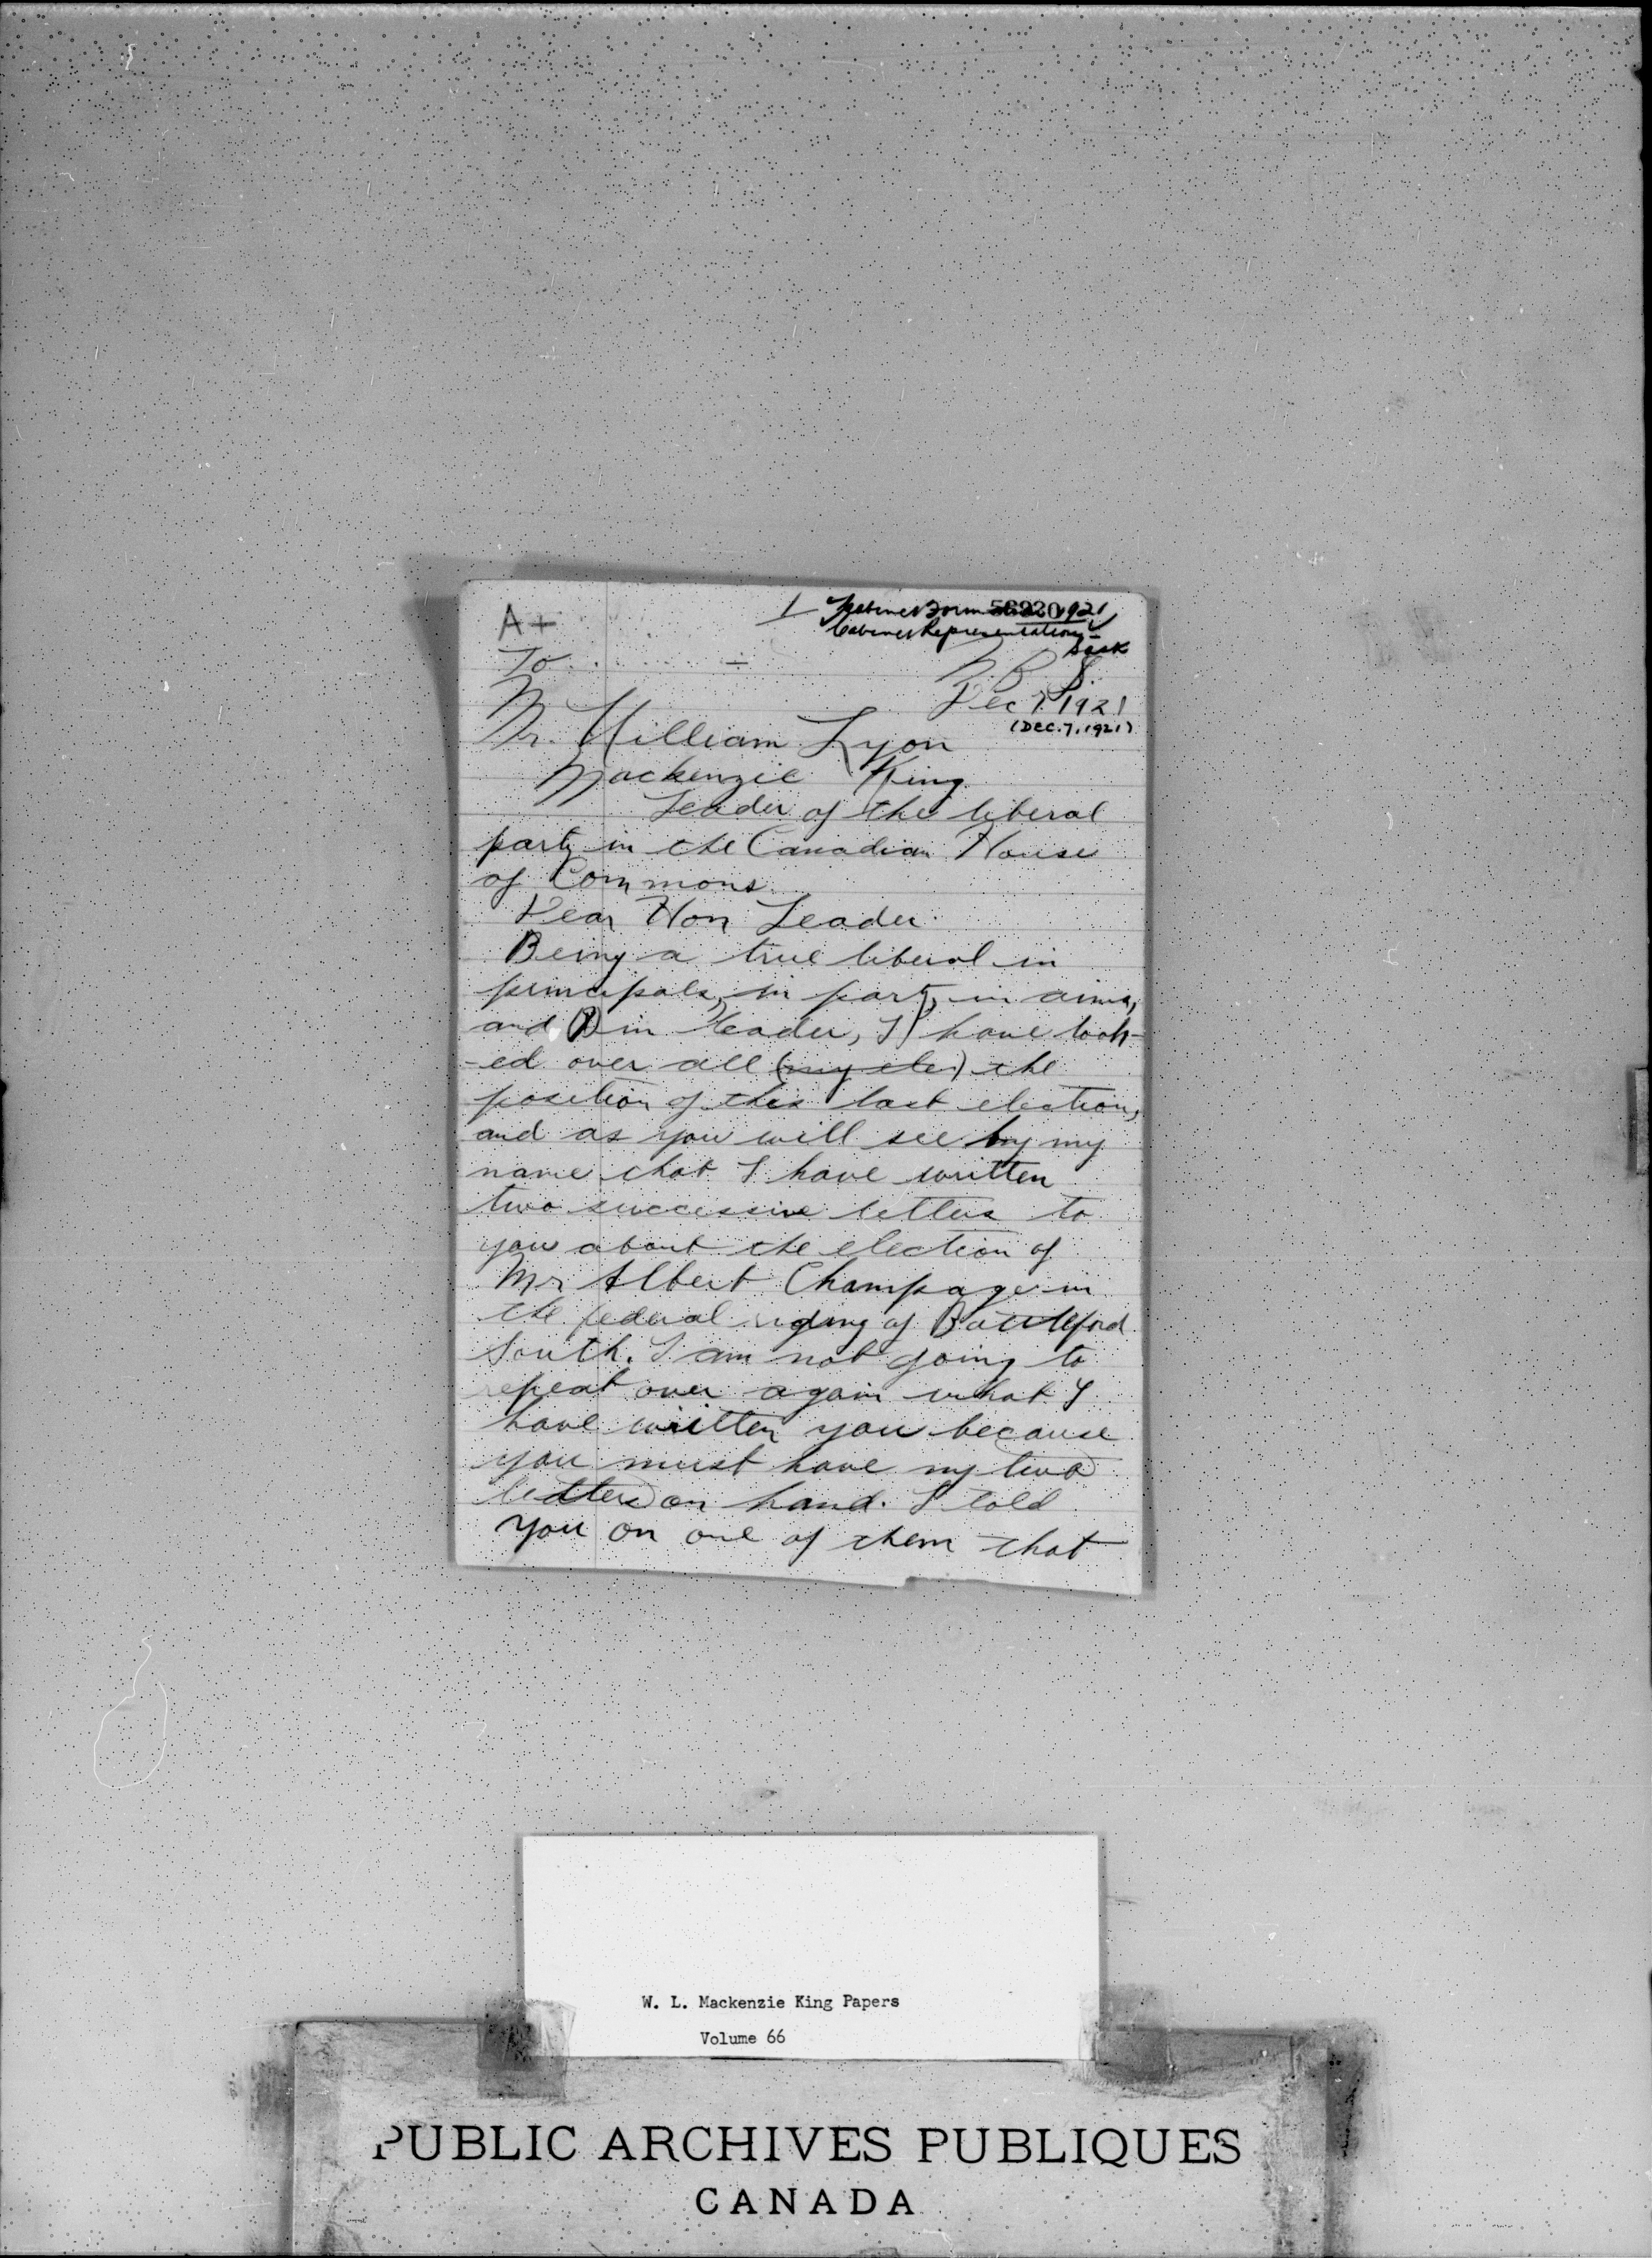 A+
1 Cabinet Form 56330 1921
Cabinet Representation -
Sask
To
N. B. S.
Dec 7. 1921
(DEC. 7. 1921)
Mr. William Lyon
Mackenzie King
Leader of the liberal
party in the Canadian House
of Commons.
Dear Hon Leader.
Being a true liberal in
principals, in party, in aims,
and in leader, I have look-
-ed over all the
position of this last election,
and as you will see by my
name that I have written
two successive letters to
you about the election of
Mr Albert Champage in
the federal riding of Battleford
South. I am not going to
repeat over again what I
have written you because
you must have my two
letters on hand. I told
you on one of them that
W. L. Mackenzie King Papers
Volume 66
PUBLIC ARCHIVES PUBLIQUES
CANADA